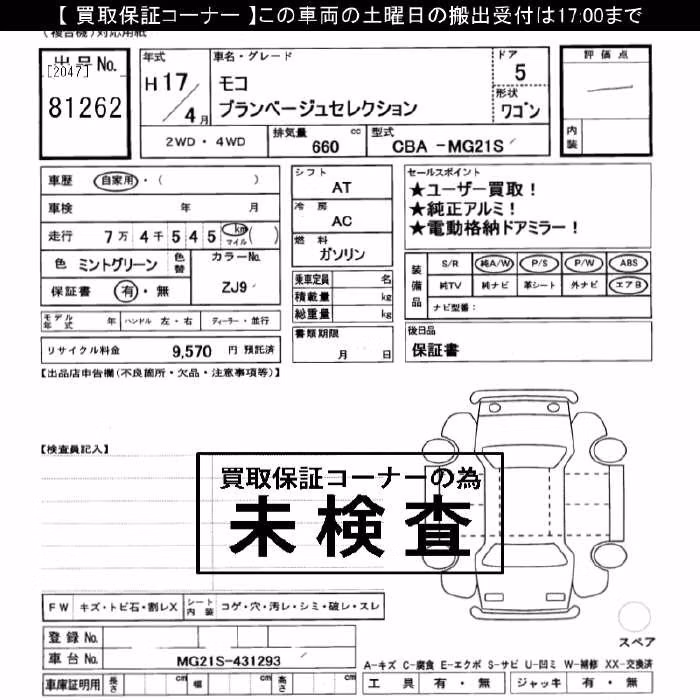 【 買取保証コーナー 】この車両の土曜日の搬出受付は17:00まで
(複合機)対応用紙
出品No.
[2047]
81262
年式
H17/4月
車名・グレード
モコ
ブランベージュセレクション
ドア
5
形状
ワゴン
2WD・4WD
排気量 660 cc
型式 CBA -MG21S
評価点
内装
車歴 自家用・( )
車検 年 月
走行 7万 4千 5 4 5 km マイル ( )
色 ミントグリーン 色替
カラーNo.
ZJ9
保証書 有・無
モデル年式 年 ハンドル 左・右 ディーラー・並行
リサイクル料金 9,570 円 預託済
シフト
AT
冷房
AC
燃料
ガソリン
乗車定員 名
積載量 kg
総重量 kg
書類期限
月 日
セールスポイント
★ユーザー買取!
★純正アルミ!
★電動格納ドアミラー!
装備品
S/R 純A/W P/S P/W ABS
純TV 純ナビ 革シート 外ナビ エアB
ナビ型番:
後日品
保証書
【出品店申告欄(不良箇所・欠品・注意事項等)】
【検査員記入】
買取保証コーナーの為
未検査
FW キズ・トビ石・割レX シート内装 コゲ・穴・汚レ・シミ・破レ・スレ
登録No.
車台No. MG21S-431293
車庫証明用 長さ cm 幅 cm 高さ cm
スペア
A-キズ C-腐食 E-エクボ S-サビ U-凹ミ W-補修 XX-交換済
工具 有・無 ジャッキ 有・無